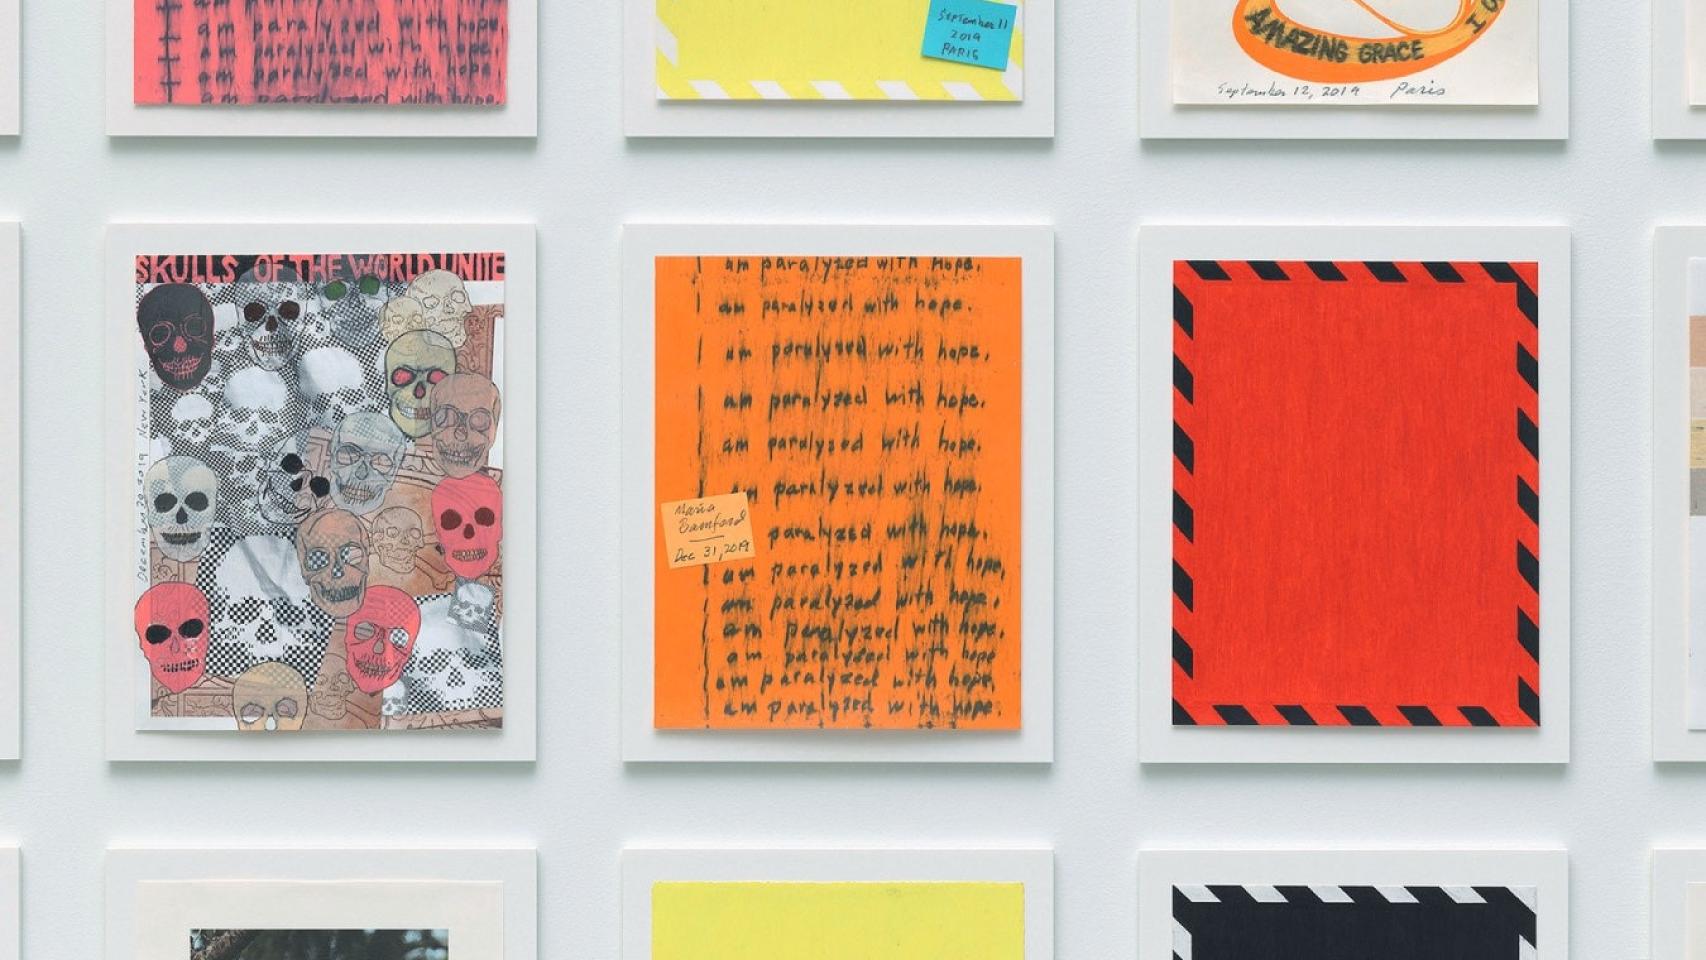 am paralyzed with hope.
am paralyzed with hope.
am paralyzed with hope.
am paralyzed with hope.
am paralyzed with hope.
September 11
2019
PARIS
AMAZING GRACE
September 12, 2019 Paris
SKULLS OF THE WORLD UNITE
December 20 2019 New York
I am paralyzed with hope.
I am paralyzed with hope.
I am paralyzed with hope.
I am paralyzed with hope.
I am paralyzed with hope.
am paralyzed with hope.
paralyzed with hope.
I am paralyzed with hope.
am paralyzed with hope.
am paralyzed with hope.
am paralyzed with hope
am paralyzed with hope,
am paralyzed with hope.
Maria
Bamford
Dec 31, 2019